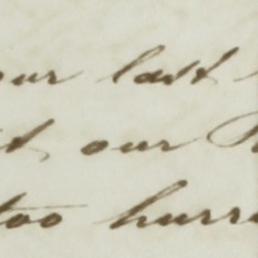 our last
our
too hurr